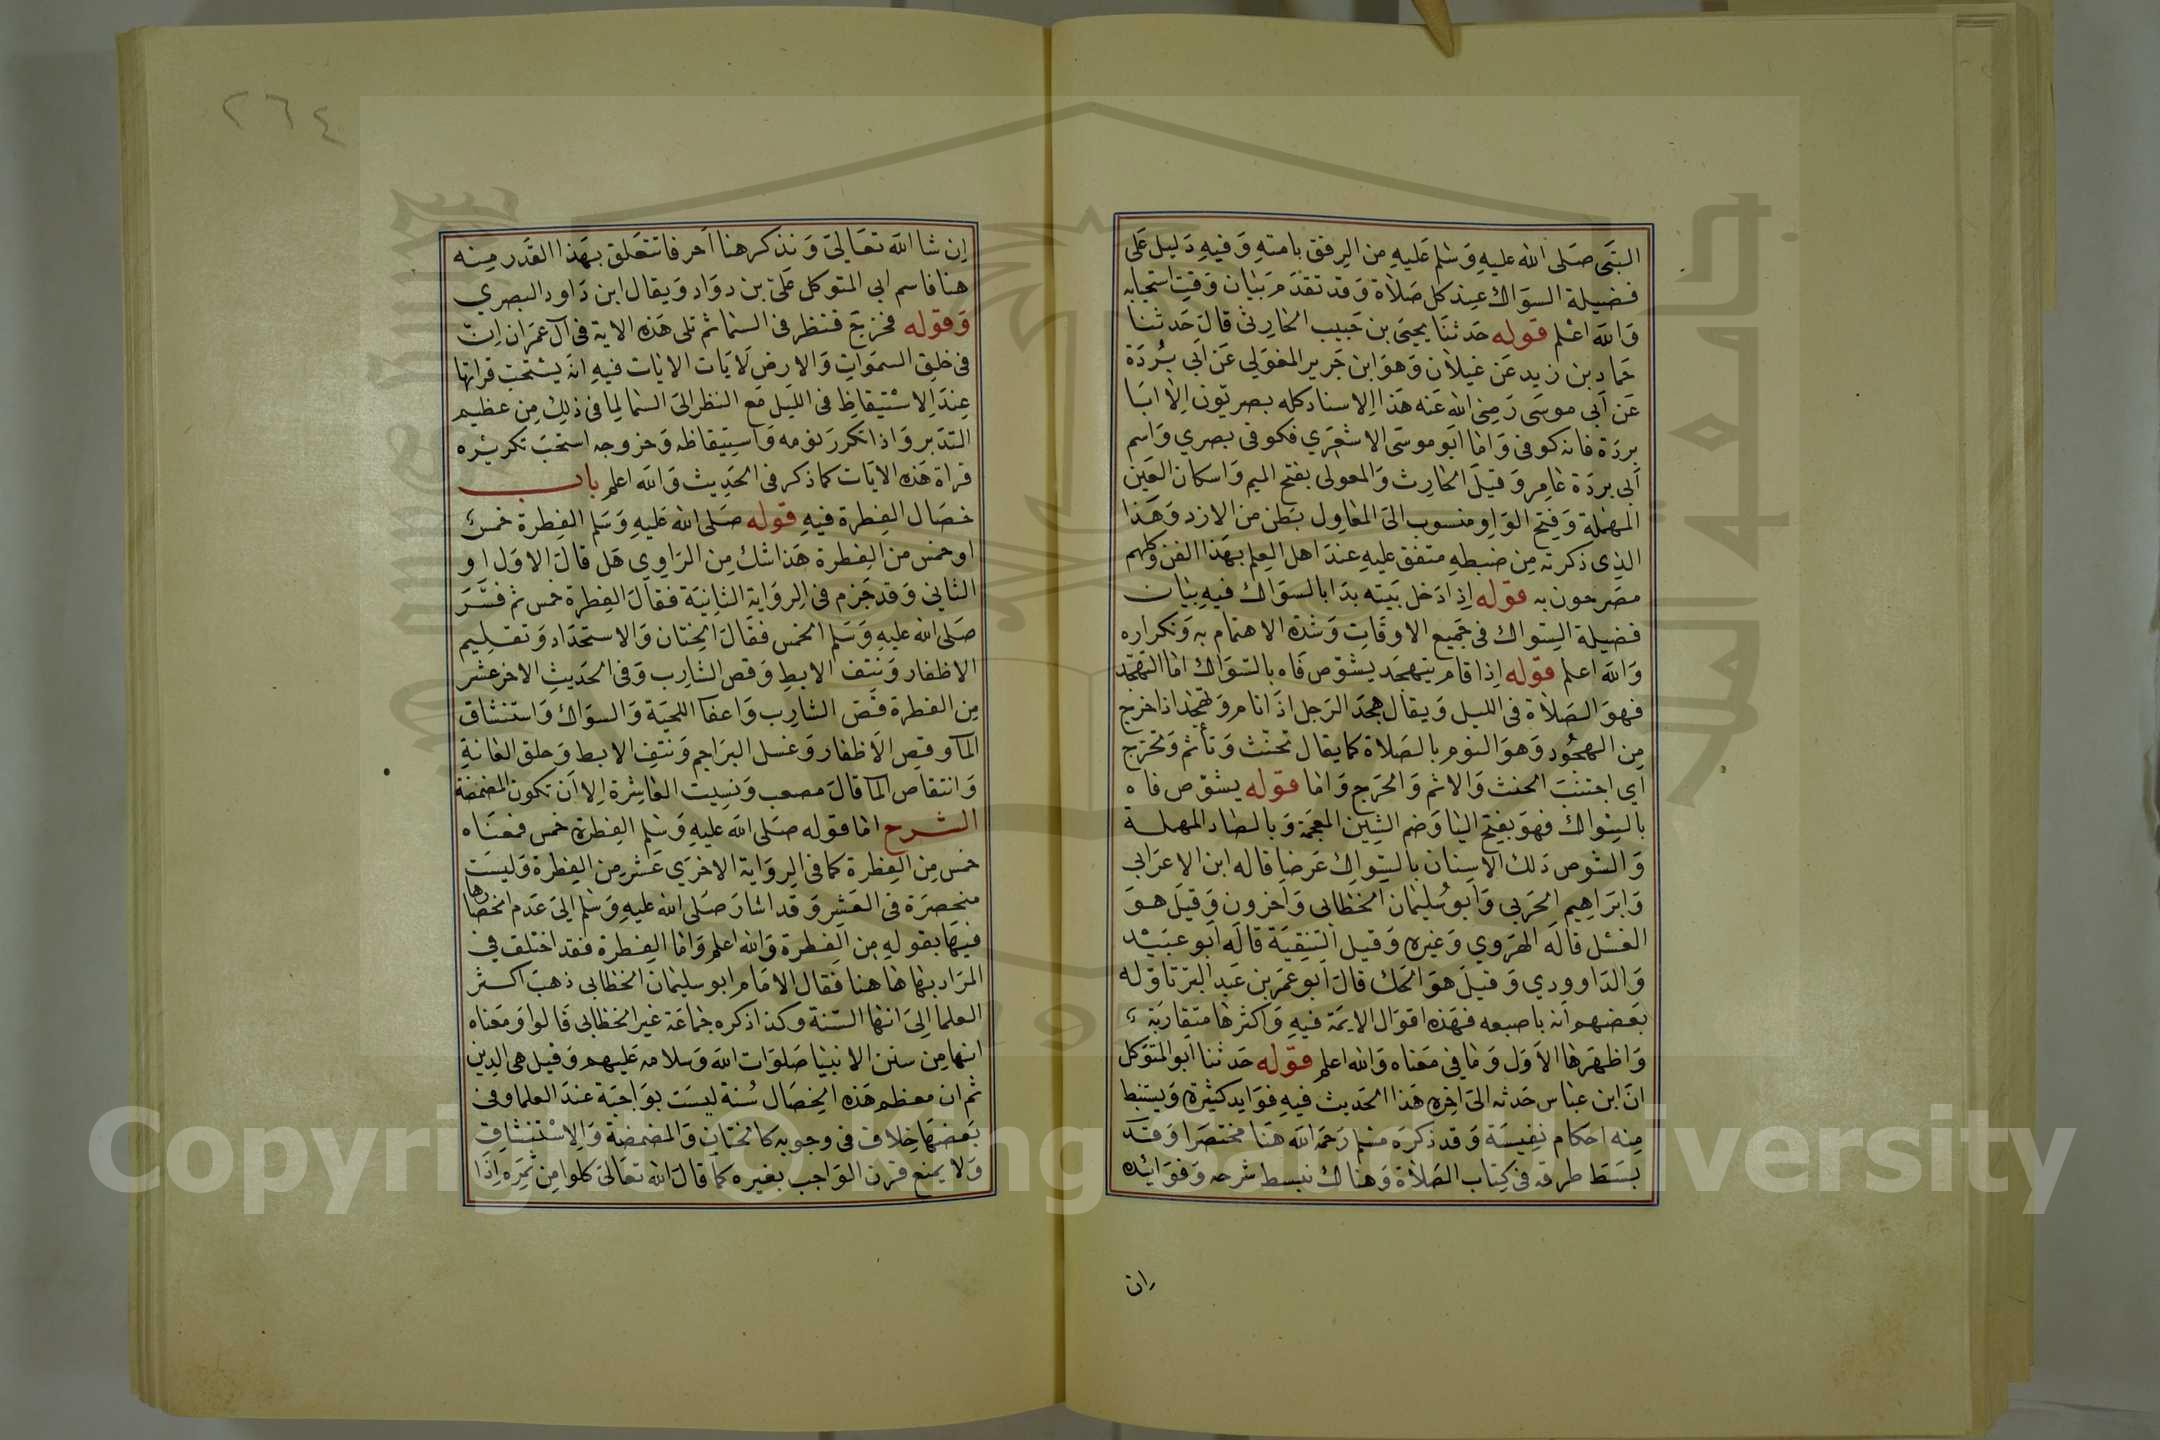 النبى صلى الله عليه وسلم عليه من الرفق بامته وفيه دليل على
فضيلة السواك عند كل صلاة وقد تقدم بيان وقت استحبابه
والله اعلم قوله حدثنا يحيى بن حبيب الحارثى قال حدثنا
حماد بن زيد عن غيلان وهو ابن جرير المعولى عن ابى بردة
عن ابى موسى رضى الله عنه هذا الاسناد كله بصريون الا ابا
بردة فانه كوفى واما ابو موسى الاشعرى فكوفى بصري واسم
ابى بردة عامر وقيل الحارث والمعولى بفتح الميم واسكان العين
المهملة وفتح الواو منسوب الى المعاول بطن من الازد وهذا
الذى ذكرته من ضبطه متفق عليه عند اهل العلم بهذا الفن وكلهم
مصرحون به قوله اذا دخل بيته بدا بالسواك فيه بيان
فضيلة السواك فى جميع الاوقات وشدة الاهتمام به وتكراره
والله اعلم قوله اذا قام يتهجد يشوص فاه بالسواك اما التهجد
فهو الصلاة فى الليل ويقال هجد الرجل اذا نام وتهجد اذا خرج
من الهجود وهو النوم بالصلاة كما يقال تحنث وتأثم وتحرج
اي اجتنب الحنث والاثم والحرج واما قوله يشوص فاه
بالسواك فهو بفتح اليا وضم الشين المعجمة وبالصاد المهملة
والشوص دلك الاسنان بالسواك عرضا قاله ابن الاعرابى
وابراهيم الحربى وابو سليمان الخطابى واخرون وقيل هو
الغسل قاله الهروي وغيره وقيل التنقية قاله ابو عبيد
والداوودي وقيل هو الحك قال ابو عمر بن عبد البر تاوله
بعضهم انه باصبعه فهذه اقوال الايمة فيه واكثرها متقاربة
واظهرها الاول وما فى معناه والله اعلم قوله حدثنا ابو المتوكل
ان ابن عباس حدثه الى اخره هذا الحديث فيه فوايد كثيرة ويستنبط
منه احكام نفيسة وقد ذكره مسلم رحمه الله هنا مختصرا وقد
بسط طرقه فى كتاب الصلاة وهناك نبسط شرحه وفوائده
ان
٢٦٤
ان شا الله تعالى ونذكر هنا احرفا تتعلق بهذا القدر منه
هنا فاسم ابى المتوكل على بن دواد ويقال ابن داود البصري
وقوله فخرج فنظر فى السما ثم تلى هذه الاية فى آل عمران ان
فى خلق السموات والارض لايات الايات فيه انه يستحب قراتها
عند الاستيقاظ فى الليل مع النظر الى السما لما فى ذلك من عظيم
التدبر واذا تكرر نومه واستيقاظه وخروجه استحب تكريره
قراة هذه الايات كما ذكر فى الحديث والله اعلم باب
خصال الفطرة فيه قوله صلى الله عليه وسلم الفطرة خمس
او خمس من الفطرة هذا شك من الراوي هل قال الاول او
الثانى وقد جزم فى الرواية الثانية فقال الفطرة خمس ثم فسر
صلى الله عليه وسلم الخمس فقال الختان والاستحداد وتقليم
الاظفار ونتف الابط وقص الشارب وفى الحديث الاخر عشر
من الفطرة قص الشارب واعفا اللحية والسواك واستنشاق
المآ وقص الاظفار وغسل البراجم ونتف الابط وحلق العانة
وانتقاص المآ قال مصعب ونسيت العاشرة الا ان تكون المضمضة
الشرح اما قوله صلى الله عليه وسلم الفطرة خمس فمعناه
خمس من الفطرة كما فى الرواية الاخري عشر من الفطرة وليست
منحصرة فى العشر وقد اشار صلى الله عليه وسلم الى عدم انحصارها
فيها بقوله من الفطرة والله اعلم واما الفطرة فقد اختلف في
المراد بها هاهنا فقال الامام ابو سليمان الخطابى ذهب اكثر
العلما الى انها السنة وكذا ذكره جماعة غير الخطابى قالوا ومعناه
انها من سنن الانبيا صلوات الله وسلامه عليهم وقيل هى الدين
ثم ان معظم هذه الخصال سنة ليست بواجبة عند العلما وفى
بعضها خلاف فى وجوبه كالختان والمضمضة والاستنشاق
ولا يمنع قرن الواجب بغيره كما قال الله تعالى كلوا من ثمره اذا